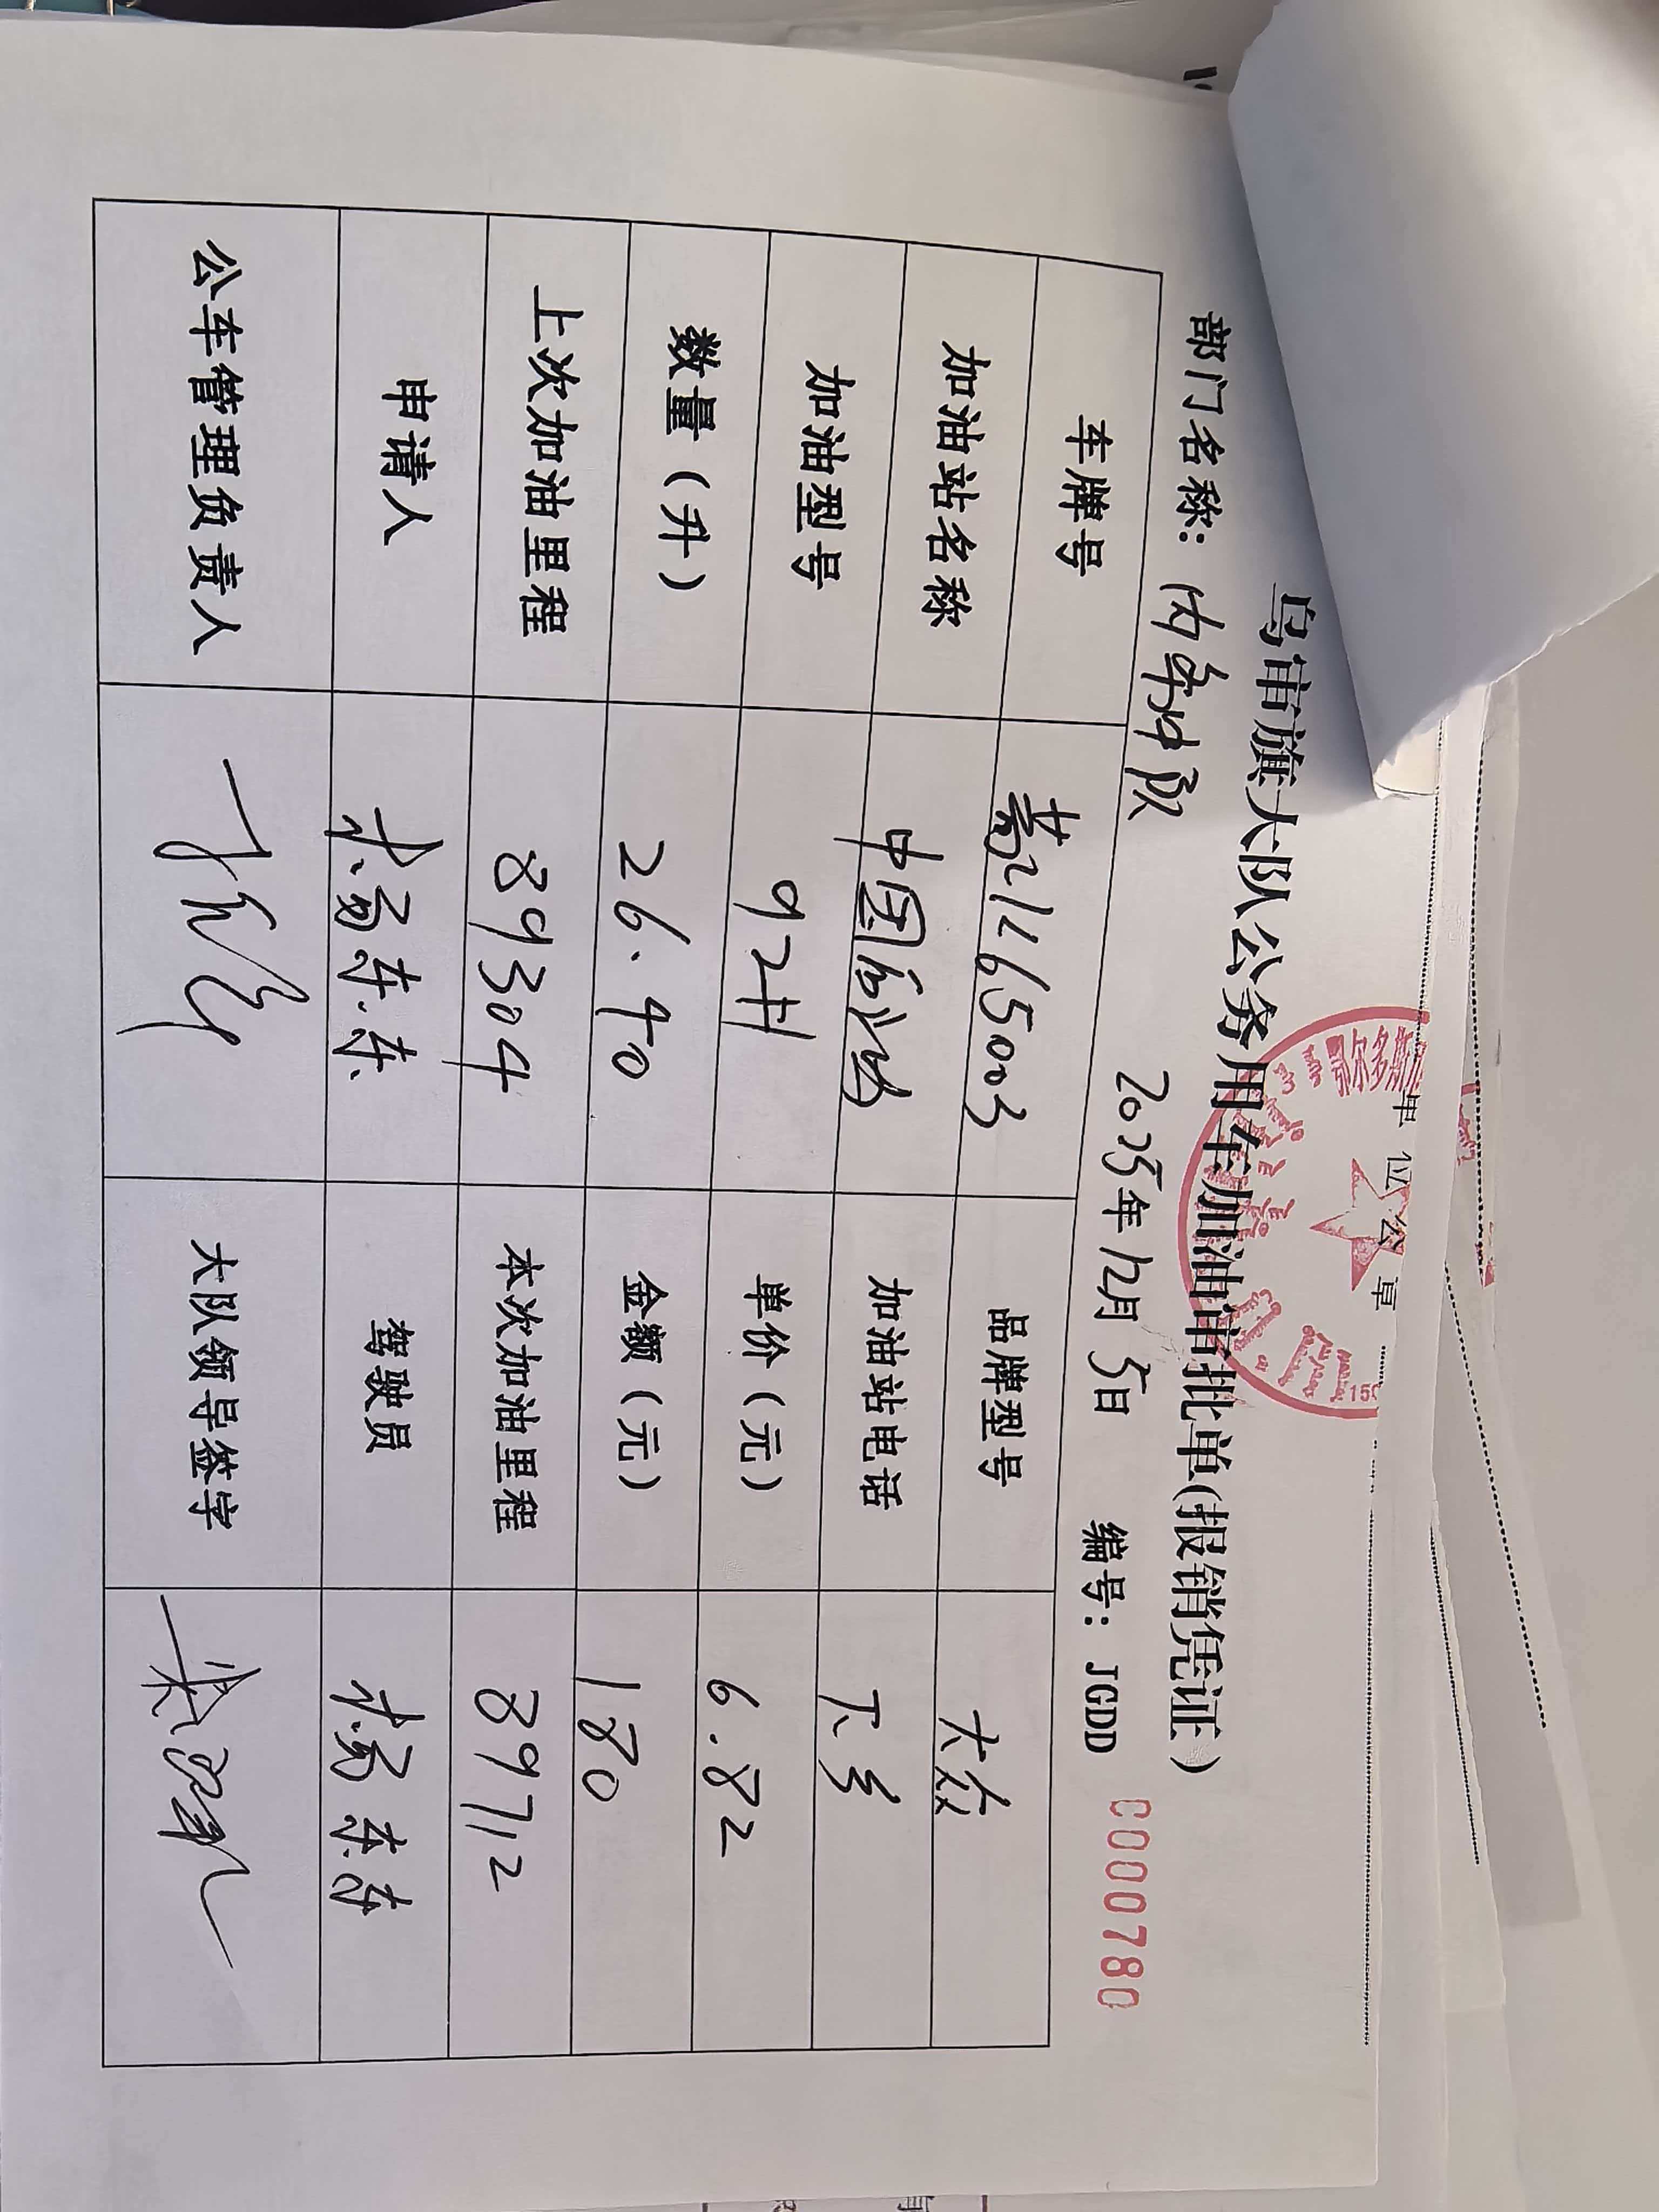 乌审旗大队公务用车加油审批单(报销凭证)
部门名称: 内勤中队 2025年12月5日 编号: JGDD 0000780
车牌号 蒙 品牌型号 大众
加油站名称 中国石油 加油站电话
加油型号 92# 单价(元) 6.82
数量(升) 26.40 金额(元) 180
上次加油里程 89304 本次加油里程 89712
申请人 杨东东 驾驶员 杨东东
公车管理负责人 大队领导签字
鄂尔多斯市
单位公章